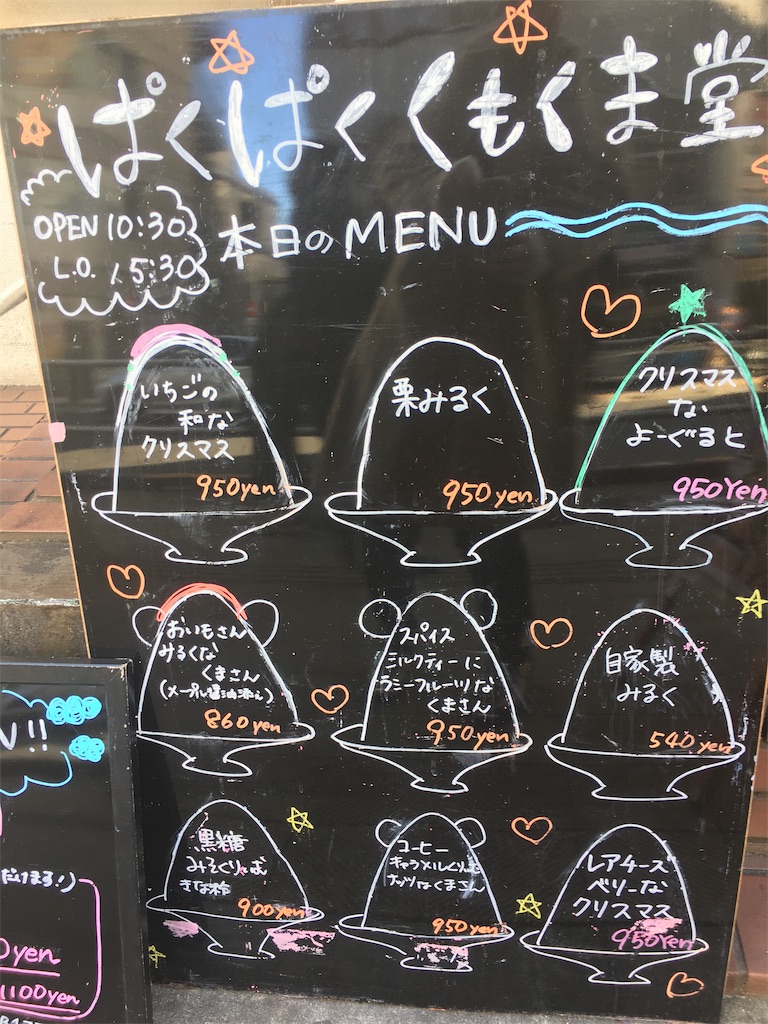 ぱくぱくくもくま堂
OPEN 10:30
L.O. 15:30
本日のMENU
いちごの
和な
クリスマス
950yen
栗みるく
950yen
クリスマス
な
よーぐると
950Yen
おいもさん
みるくな
くまさん
(メープル醤油添え)
860yen
スパイス
ミルクティーに
ラミーフルーツな
くまさん
950yen
自家製
みるく
540yen
黒糖
みるくりぃむ
きな粉
900yen
コーヒー
キャラメル
ナッツなくまさん
950yen
レアチーズ
ベリーな
クリスマス
950yen
!!
だけます!)
0yen
1100yen